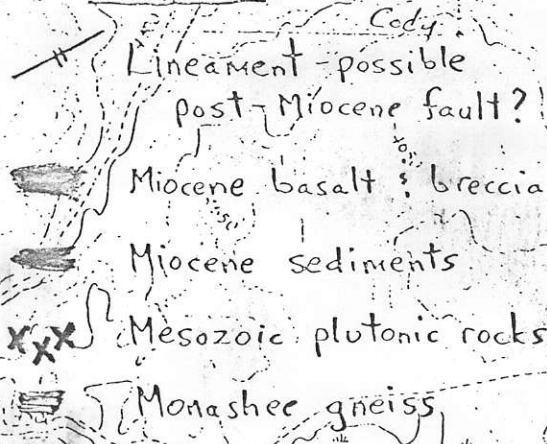 Cody
Lineament - possible
post-Miocene fault?
Miocene basalt & breccia
Miocene sediments
Mesozoic plutonic rocks
Monashee gneiss